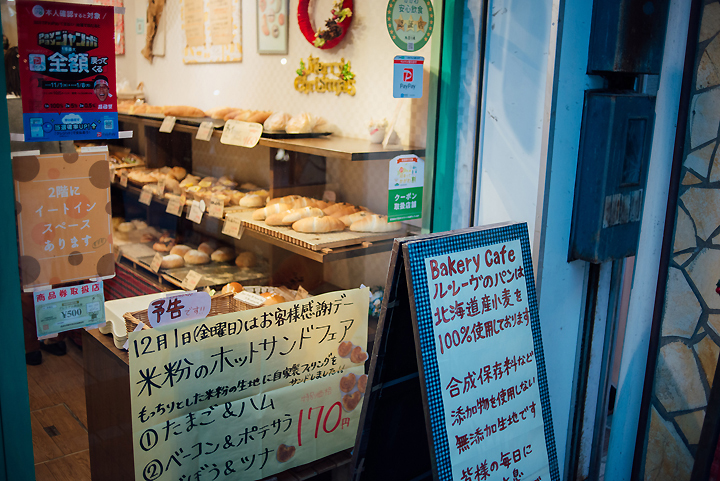 本人確認すると対象
PayPay
ジャンボ
全額
戻ってくる
2階に
イートイン
スペース
あります
商品券取扱店
¥500
ジャンボ
Merry
Christmas
PayPay
クーポン
取扱店舗
予告ですッ
12月1日(金曜日)はお客様感謝デー
米粉のホットサンドフェア
もっちりとした米粉の生地に自家製フィリングを
サンドしました!!
①たまご&ハム
②ベーコン&ポテサラ
ごぼう&ツナ
170円
Bakery Cafe
ル・レーヴのパンは
北海道産小麦を
100%使用しております
合成保存料など
添加物を使用しない
無添加生地です
皆様の毎日に